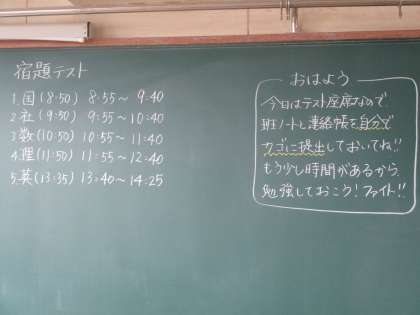 宿題テスト
1.国(8:50) 8:55～ 9:40
2.社(9:50) 9:55～10:40
3.数(10:50) 10:55～11:40
4.理(11:50) 11:55～12:40
5.英(13:35) 13:40～14:25
おはよう
今日はテスト座席なので
班ノートと連絡帳を自分で
カゴに提出しておいてね!!
もう少し時間があるから
勉強しておこう!ファイト!!